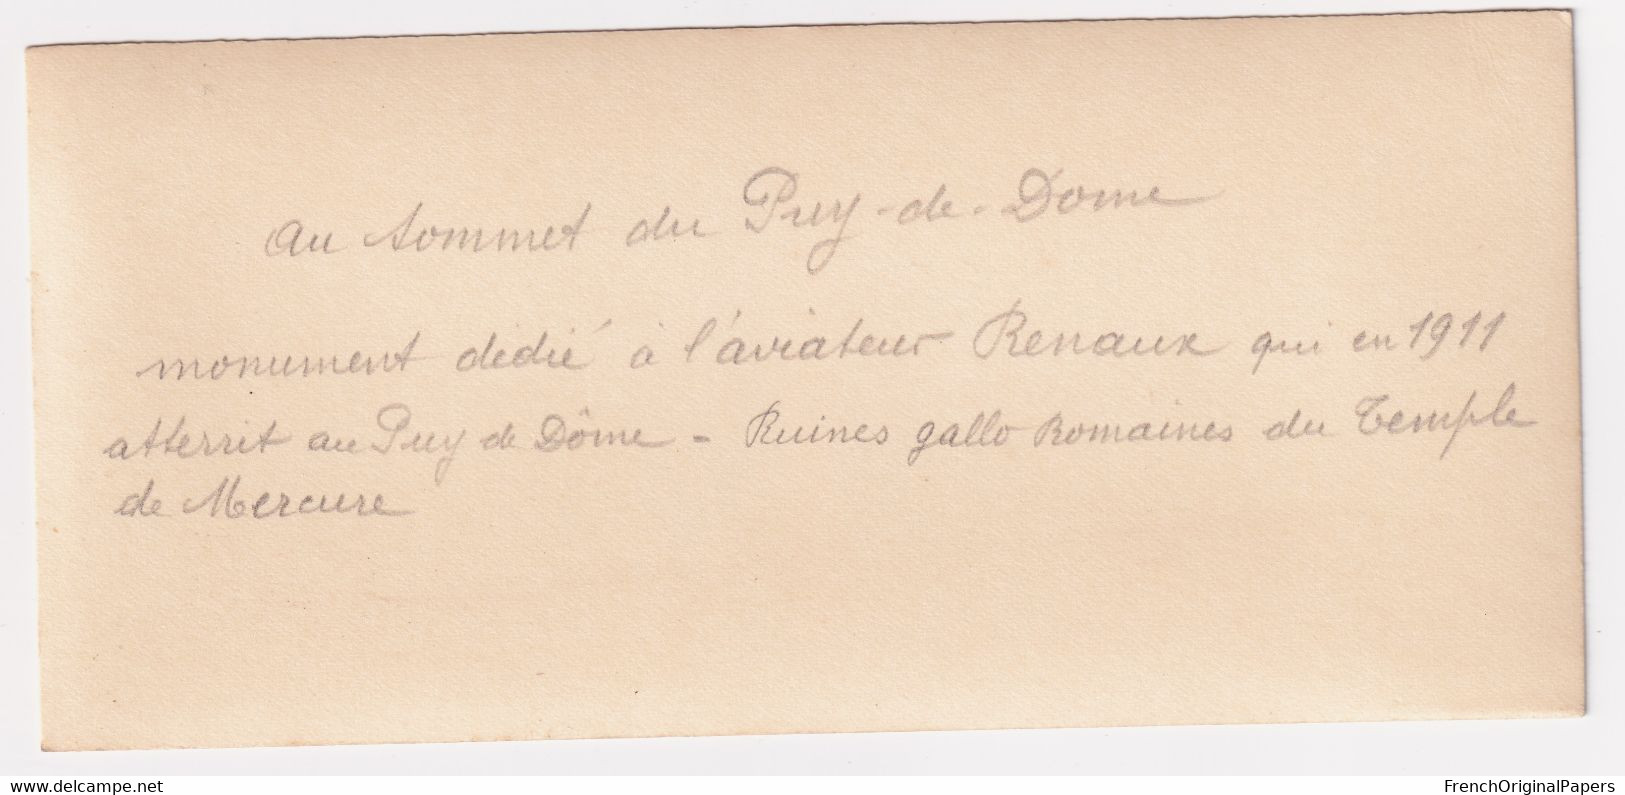 au sommet du Puy-de-Dome
monument dédié à l'aviateur Renaux qui en 1911
atterrit au Puy de Dôme - Ruines gallo Romaines du Temple
de Mercure
delcampe.net
FrenchOriginalPapers